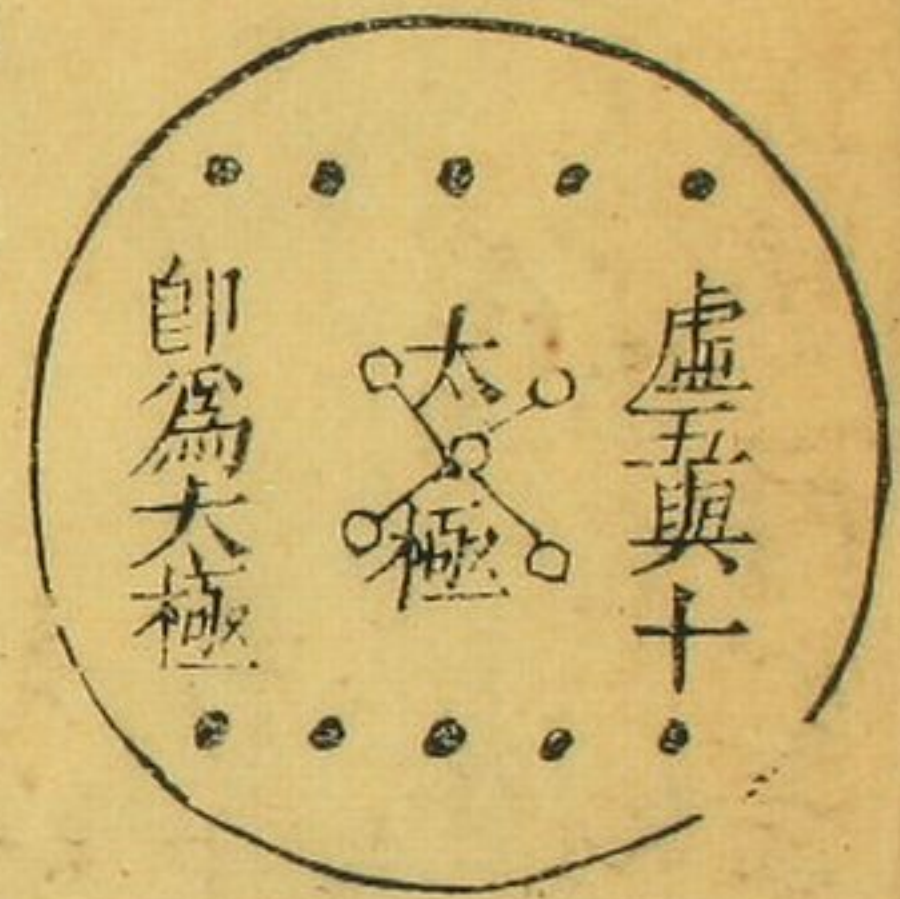 虛五與十
太極
即爲太極